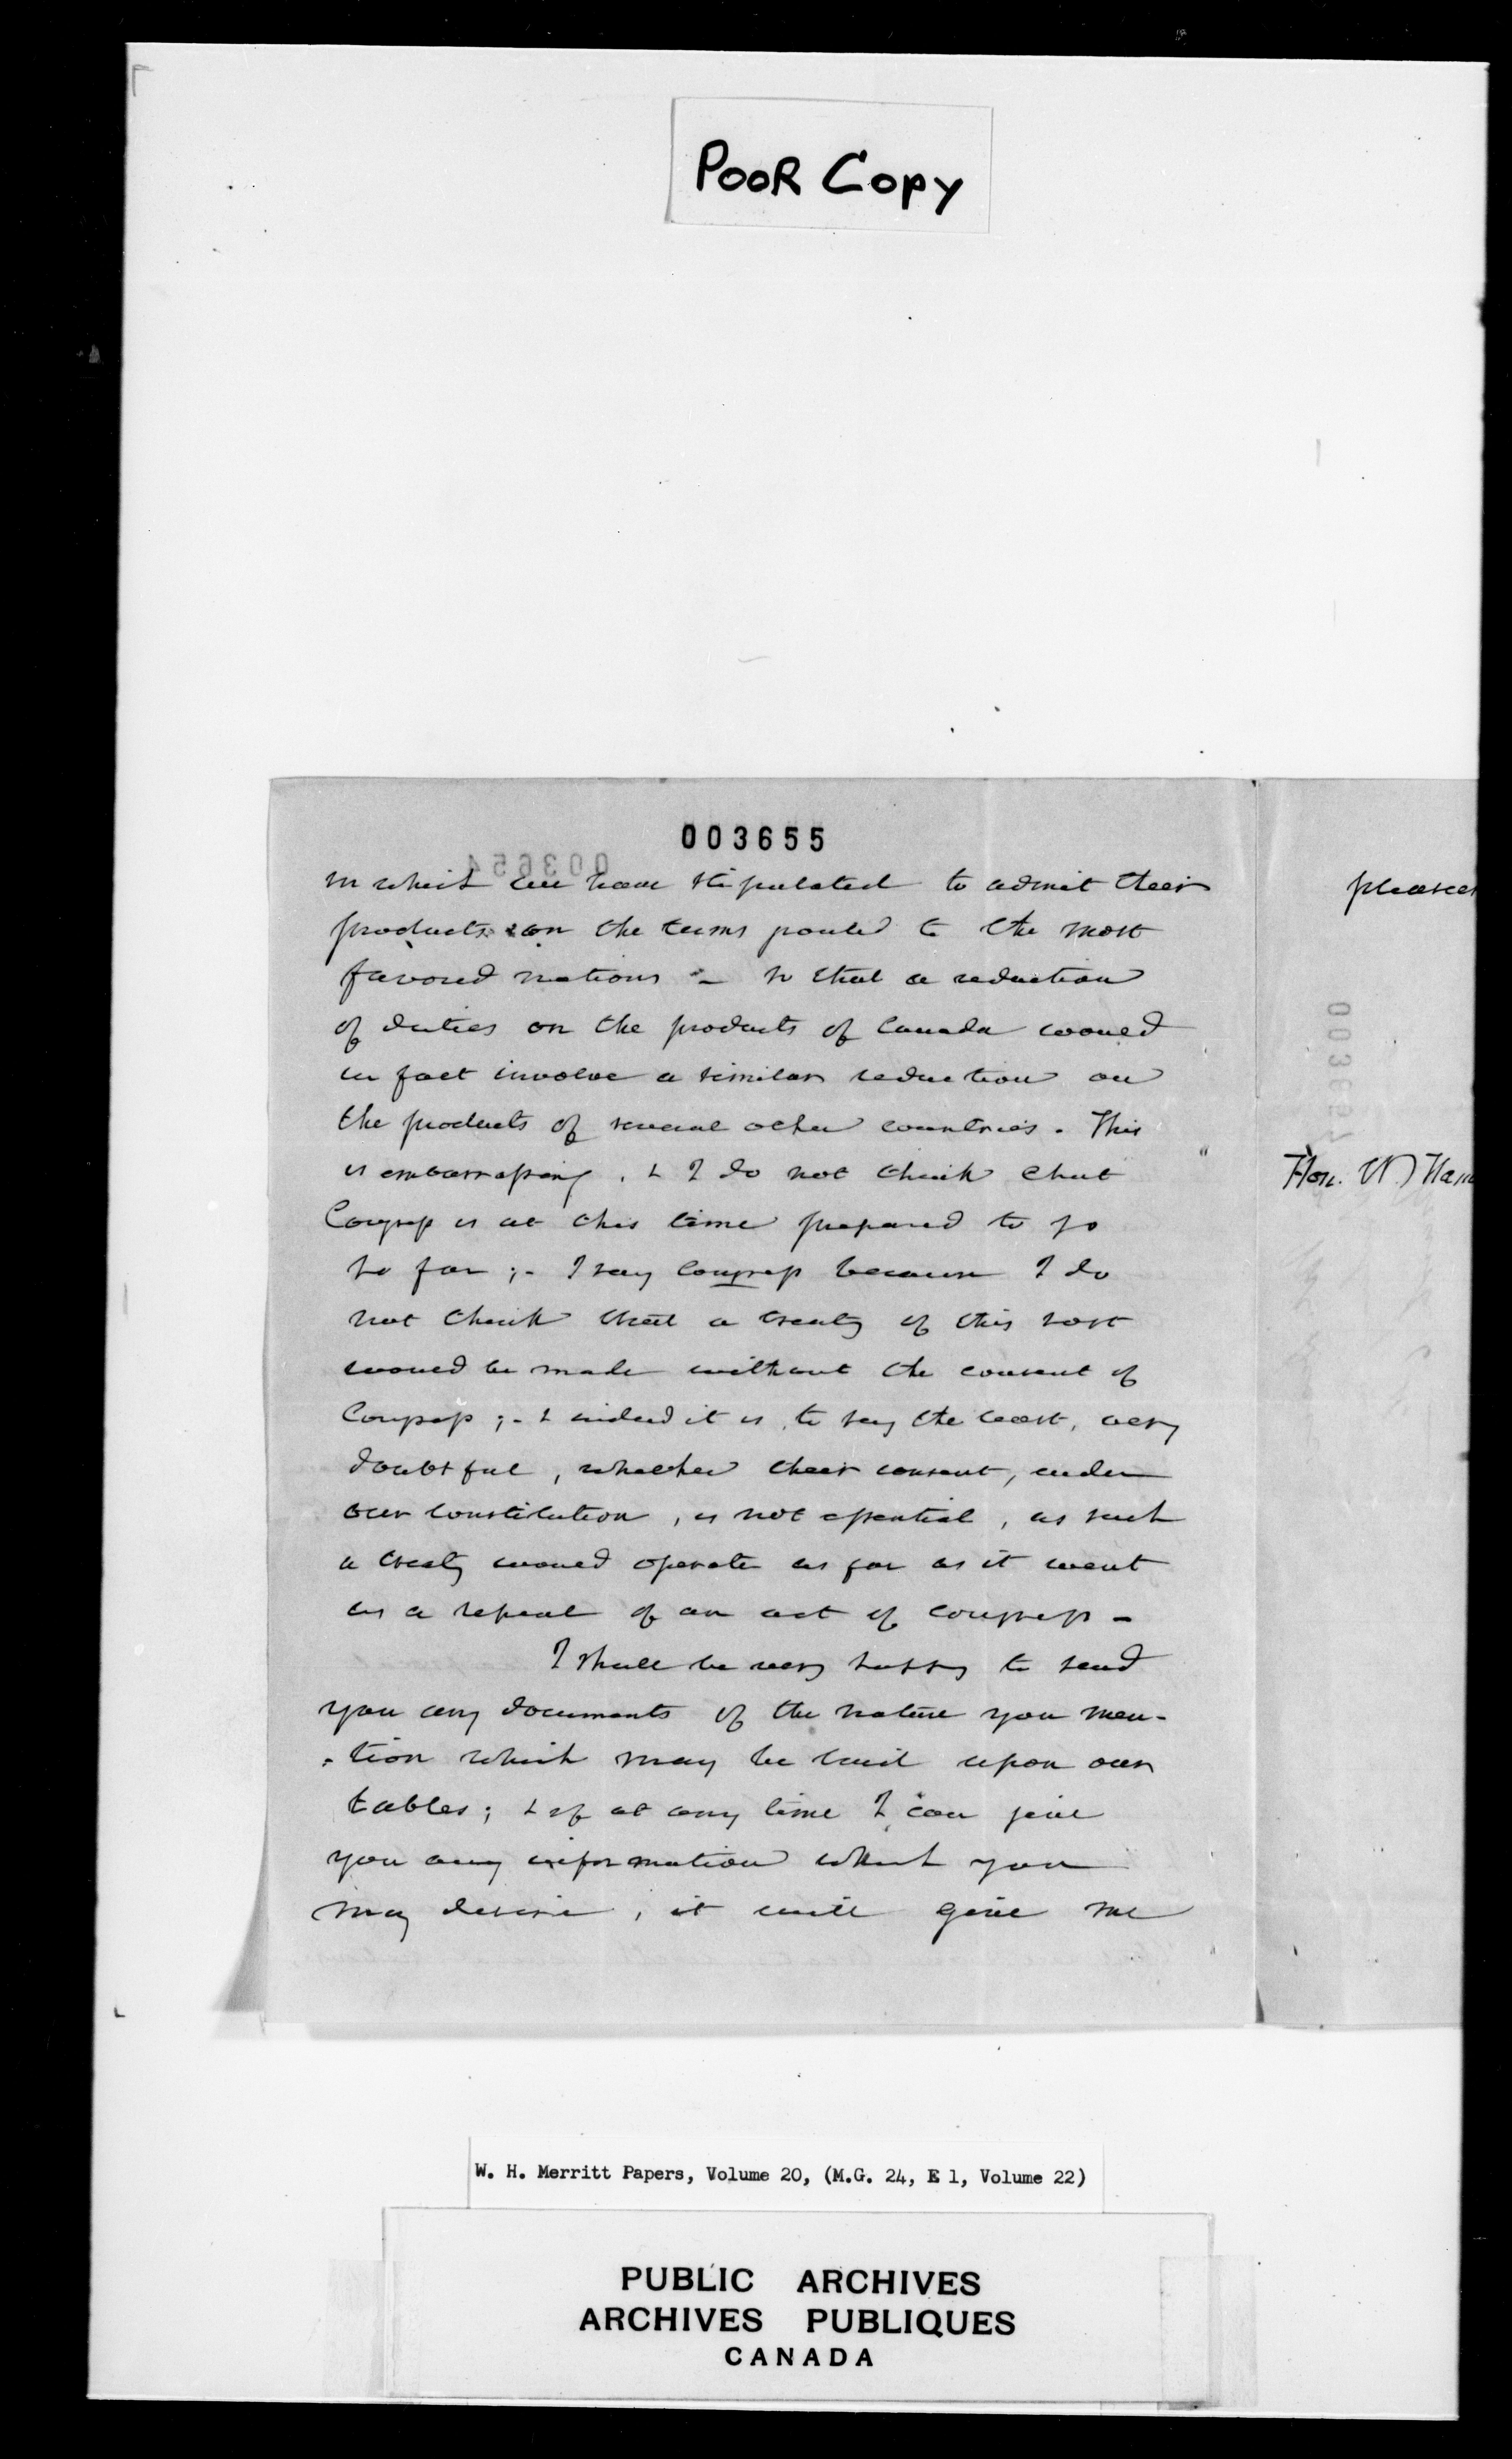 POOR COPY
003655
in which we have stipulated to admit their
products on the terms granted to the most
favored nations - so that a reduction
of duties on the products of Canada would
in fact involve a similar reduction on
the products of several other countries. This
is embarrassing, & I do not think that
Congress is at this time prepared to go
so far ;- I say Congress because I do
not think that a treaty of this sort
would be made without the consent of
Congress ;- & indeed it is, to say the least, very
doubtful, whether their consent, under
our constitution, is not essential, as such
a treaty would operate as far as it went
as a repeal of an act of congress -
I shall be very happy to send
you any documents of the nature you men-
-tion which may be laid upon our
tables; & if at any time I can give
you any information which you
may desire, it will give me
Hon. W.
W. H. Merritt Papers, Volume 20, (M.G. 24, E 1, Volume 22)
PUBLIC ARCHIVES
ARCHIVES PUBLIQUES
CANADA